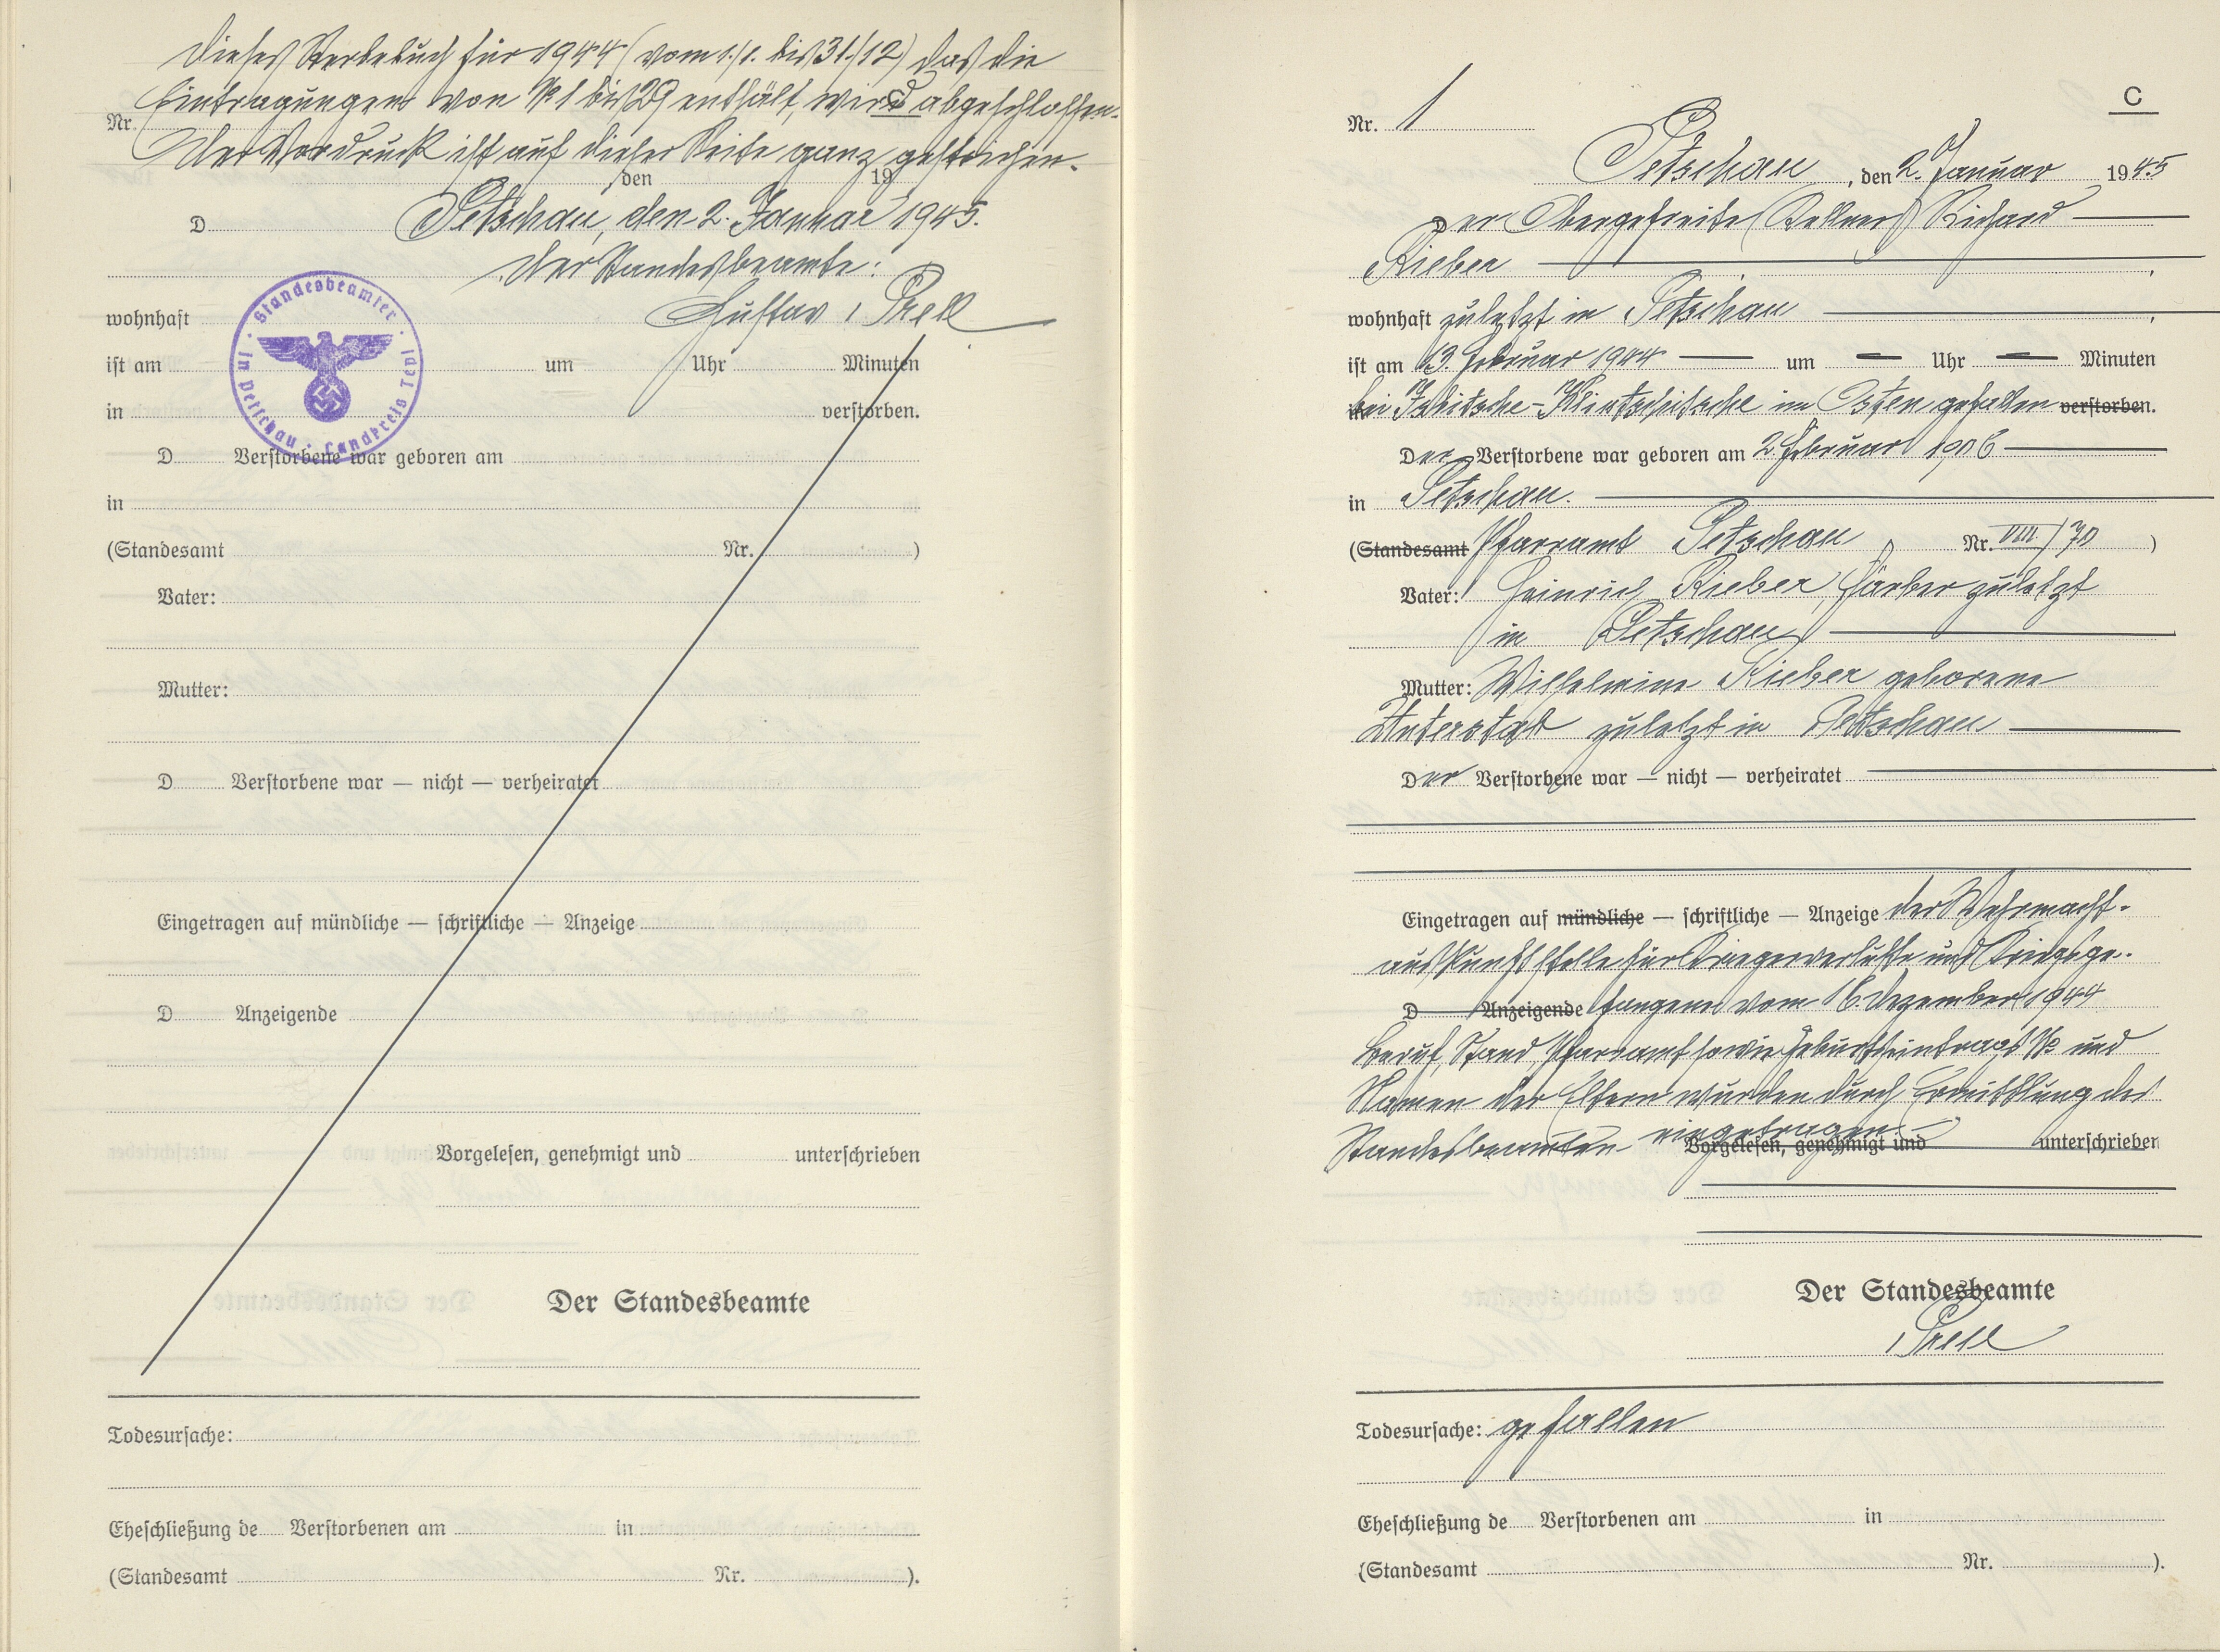 Dieses Sterbebuch für 1944 (vom 1./1. bis 31./12) das die
Eintragungen von № 1 bis 29 enthält, wird abgeschlossen.
Nr.
Der Vordruck ist auf dieser Seite ganz gestrichen.
, den 19
D Petschau, den 2. Januar 1945.
Der Standesbeamte:
wohnhaft Gustav Prell
Standesbeamter · in Petschau · Landkreis Tepl
ist am um Uhr Minuten
in verstorben.
D Verstorbene war geboren am
in
(Standesamt Nr. )
Vater:
Mutter:
D Verstorbene war — nicht — verheiratet
Eingetragen auf mündliche — schriftliche — Anzeige
D Anzeigende
Vorgelesen, genehmigt und unterschrieben
Der Standesbeamte
Todesursache:
Eheschließung de Verstorbenen am in
(Standesamt Nr. ).
C
Nr. 1
Petschau, den 2. Januar 1945
Der Obergefreite (Kellner) Richard
Rieber ,
wohnhaft zuletzt in Petschau ,
ist am 13. Februar 1944 — um — Uhr — Minuten
bei im Osten gefallen verstorben.
Der Verstorbene war geboren am 2. Februar 1906
in Petschau.
(Standesamt Pfarramt Petschau Nr. VIII/70 )
Vater: Heinrich Rieber, Färber zuletzt
in Petschau
Mutter: Wilhelmine Rieber geborene
zuletzt in Petschau
Der Verstorbene war — nicht — verheiratet
Eingetragen auf mündliche — schriftliche — Anzeige der Wehrmacht-
auskunftstelle für Kriegerverluste und Kriegsge-
D Anzeigende fangene vom 16. Dezember 1944
Beruf, Stand, Pfarramt sowie Geburtseintrags № und
Namen der Eltern wurden durch Ermittlung des
Standesbeamten eingetragen.
Vorgelesen, genehmigt und unterschrieben
Der Standesbeamte
Prell
Todesursache: gefallen
Eheschließung de Verstorbenen am in
(Standesamt Nr. ).